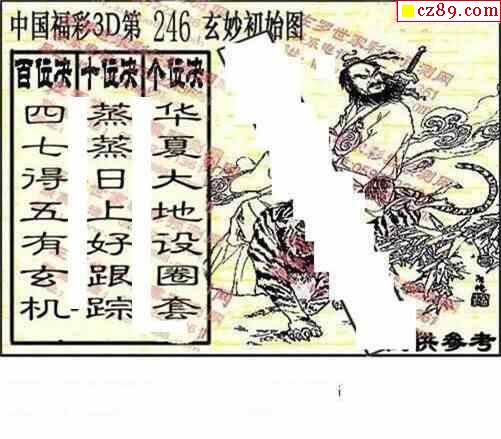 cz89.com
中国福彩3D第 246 玄妙初始图
百位决 十位决 个位决
四七得五有玄机
蒸蒸日上好跟踪
华夏大地设圈套
供参考